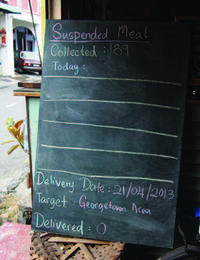 Suspended Meal
Collected : 189
Today :
Delivery Date : 21/04/2013
Target : Georgetown Area
Delivered : 0